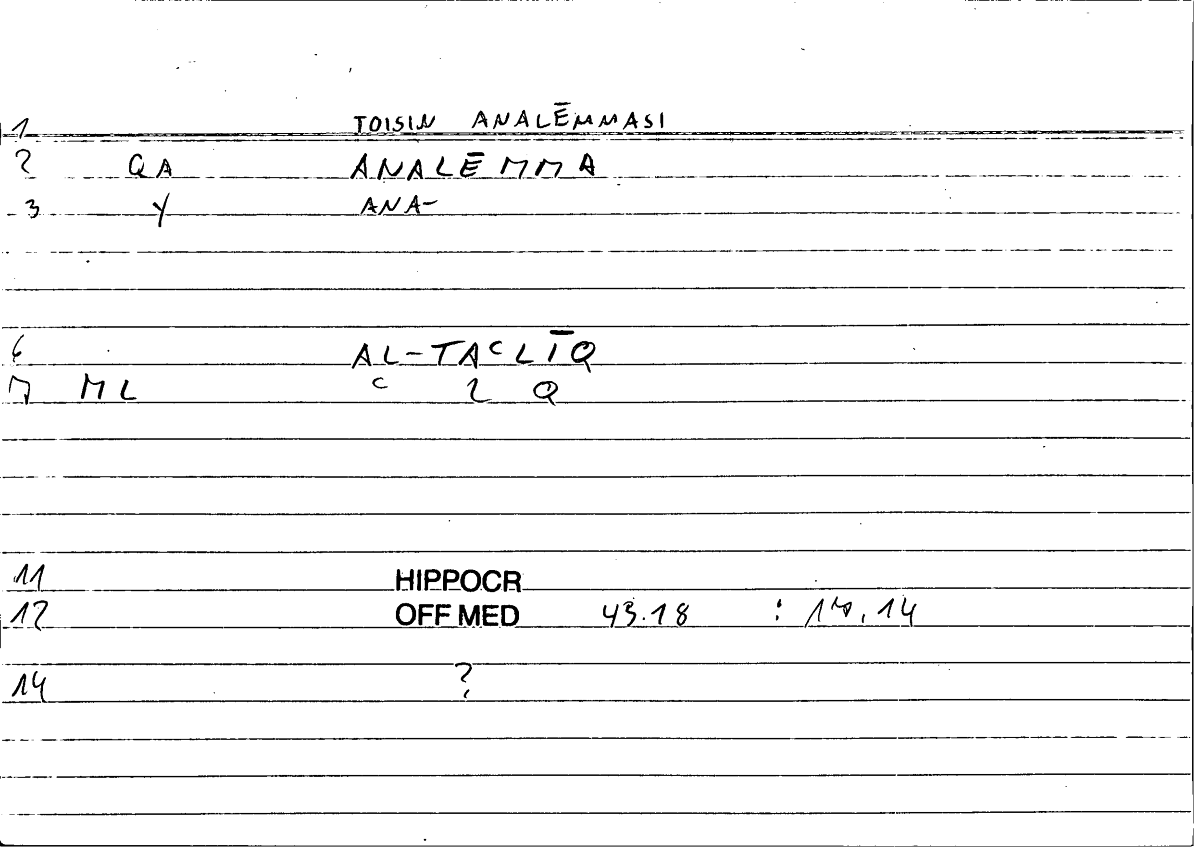 1 TOISIN ANALĒMMASI
2 QA ANALĒMMA
3 Y ANA-
6 AL-TAʿLĪQ
7 ML ʿ 2 Q
11 HIPPOCR
12 OFF MED 43.18 : 17,14
14 ?